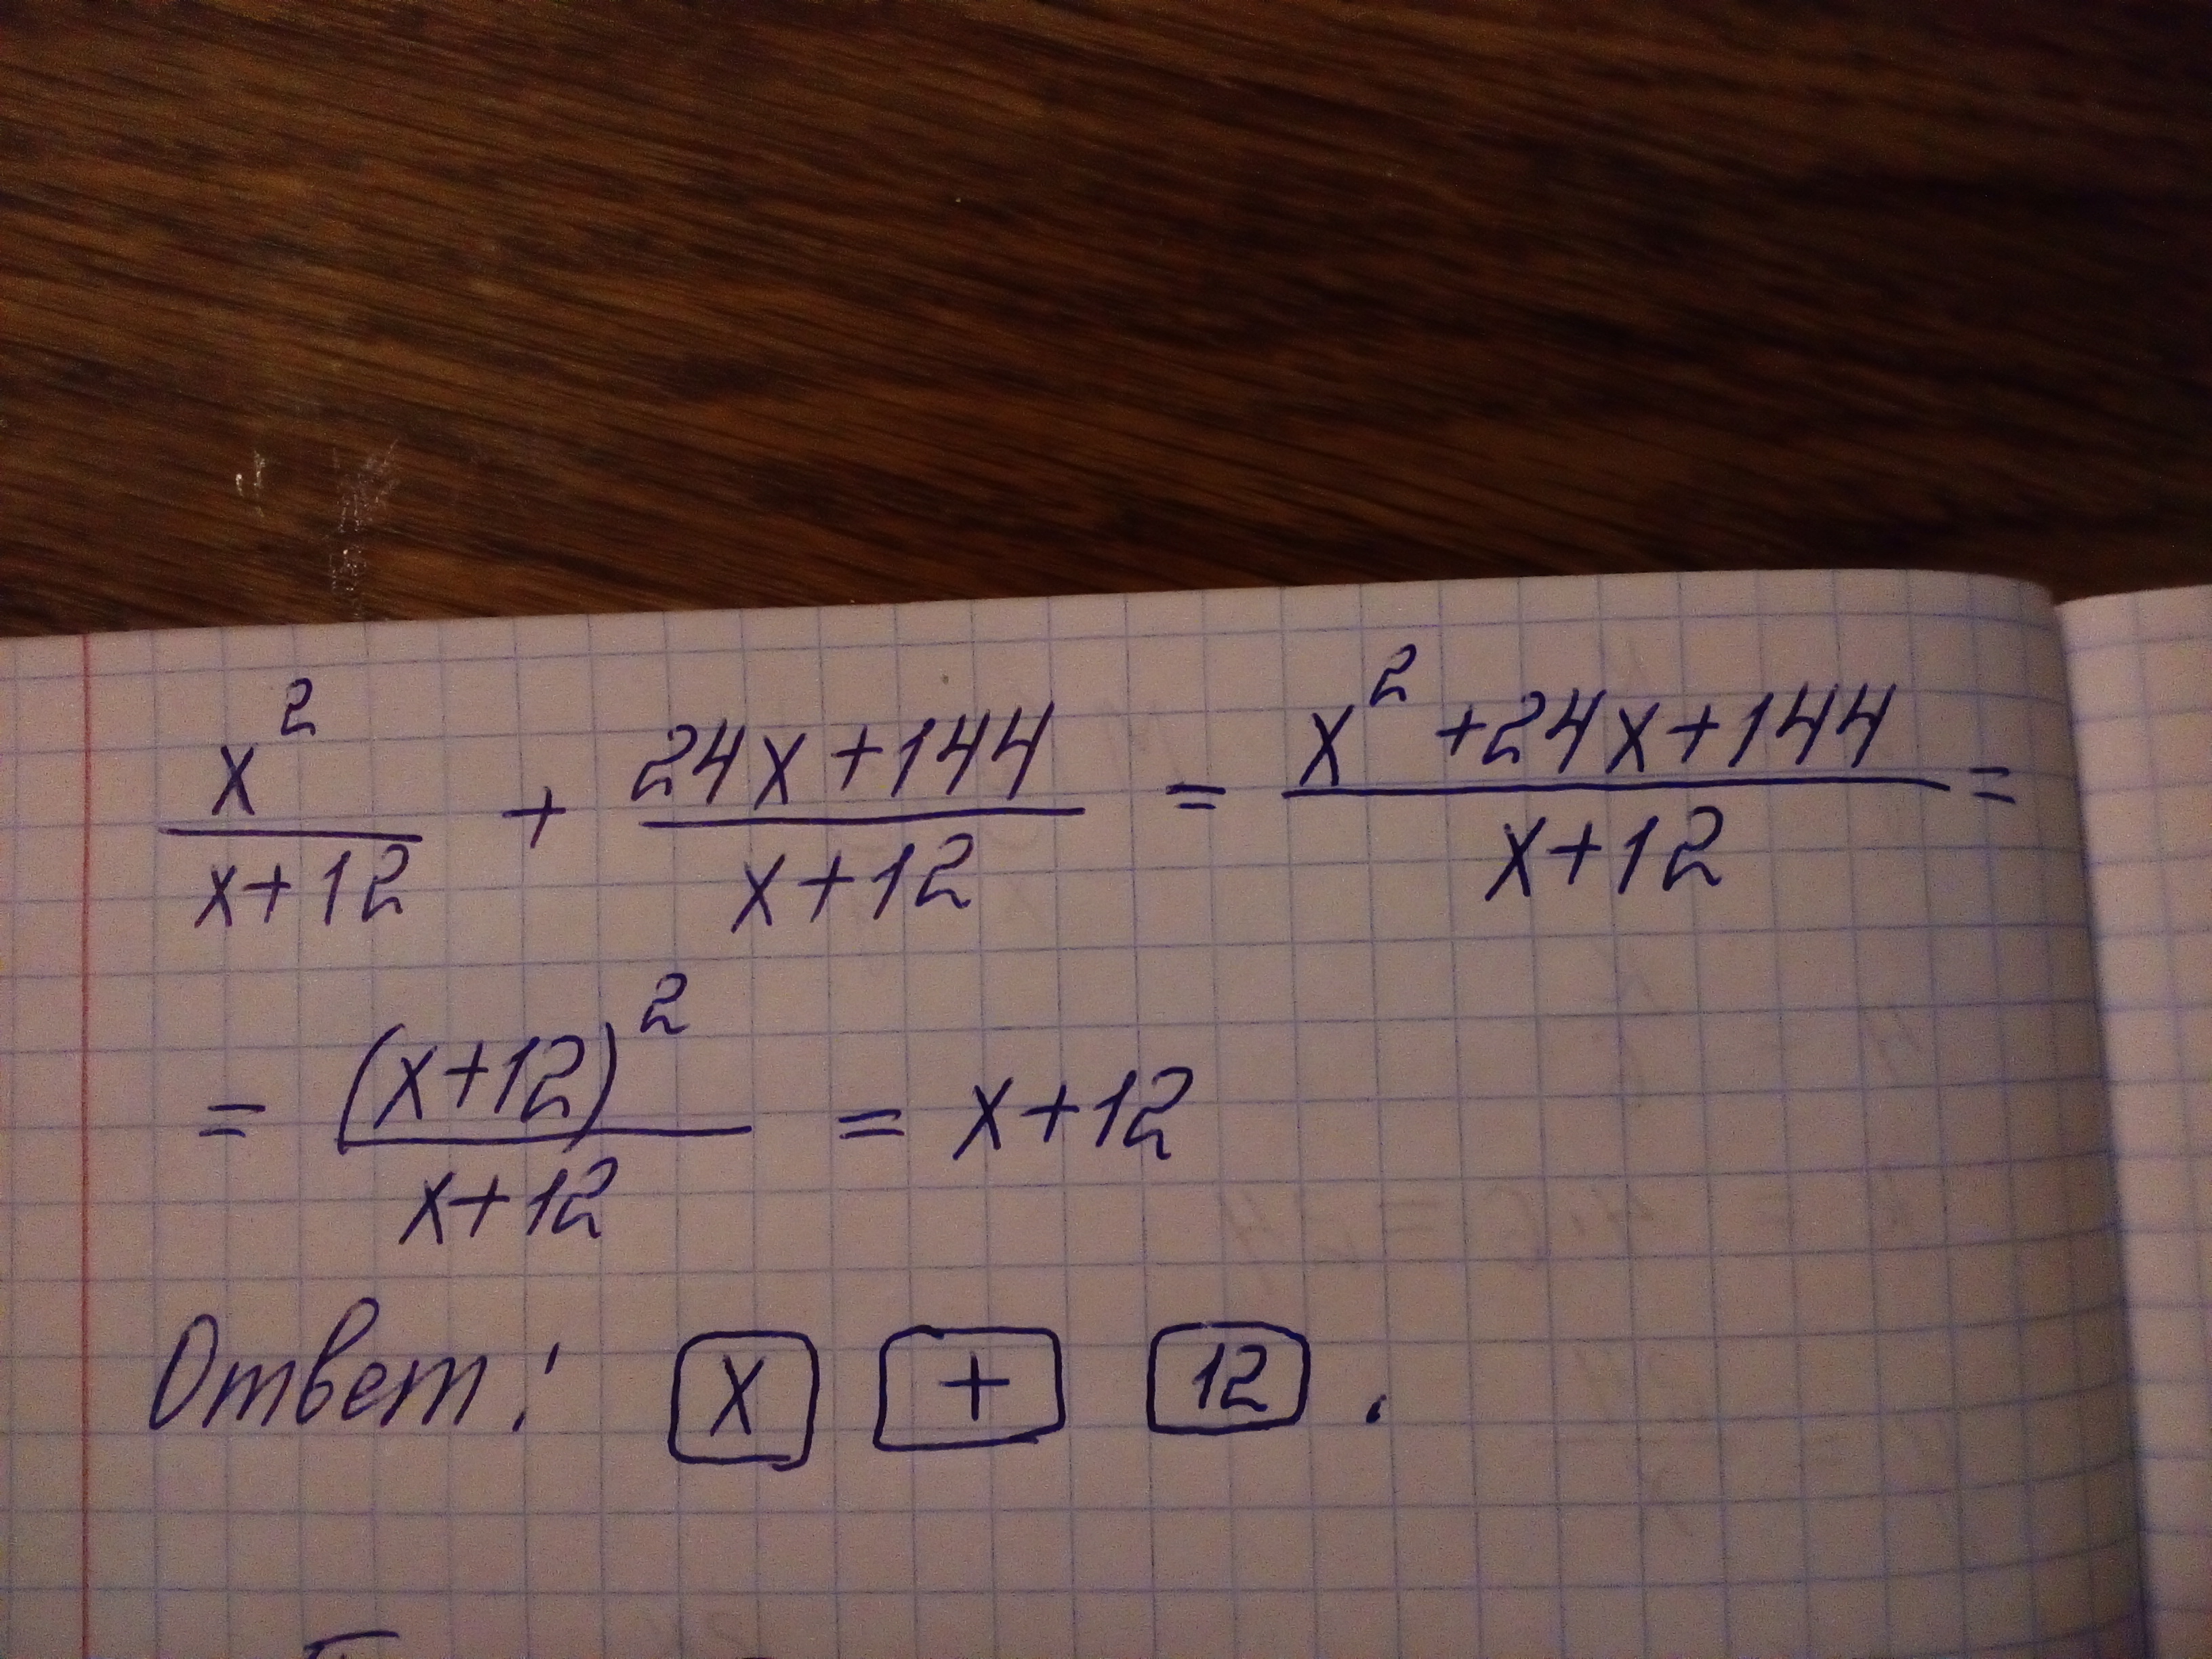 x²/(x+12) + (24x+144)/(x+12) = (x²+24x+144)/(x+12) =
= (x+12)²/(x+12) = x+12
Ответ: x + 12 .